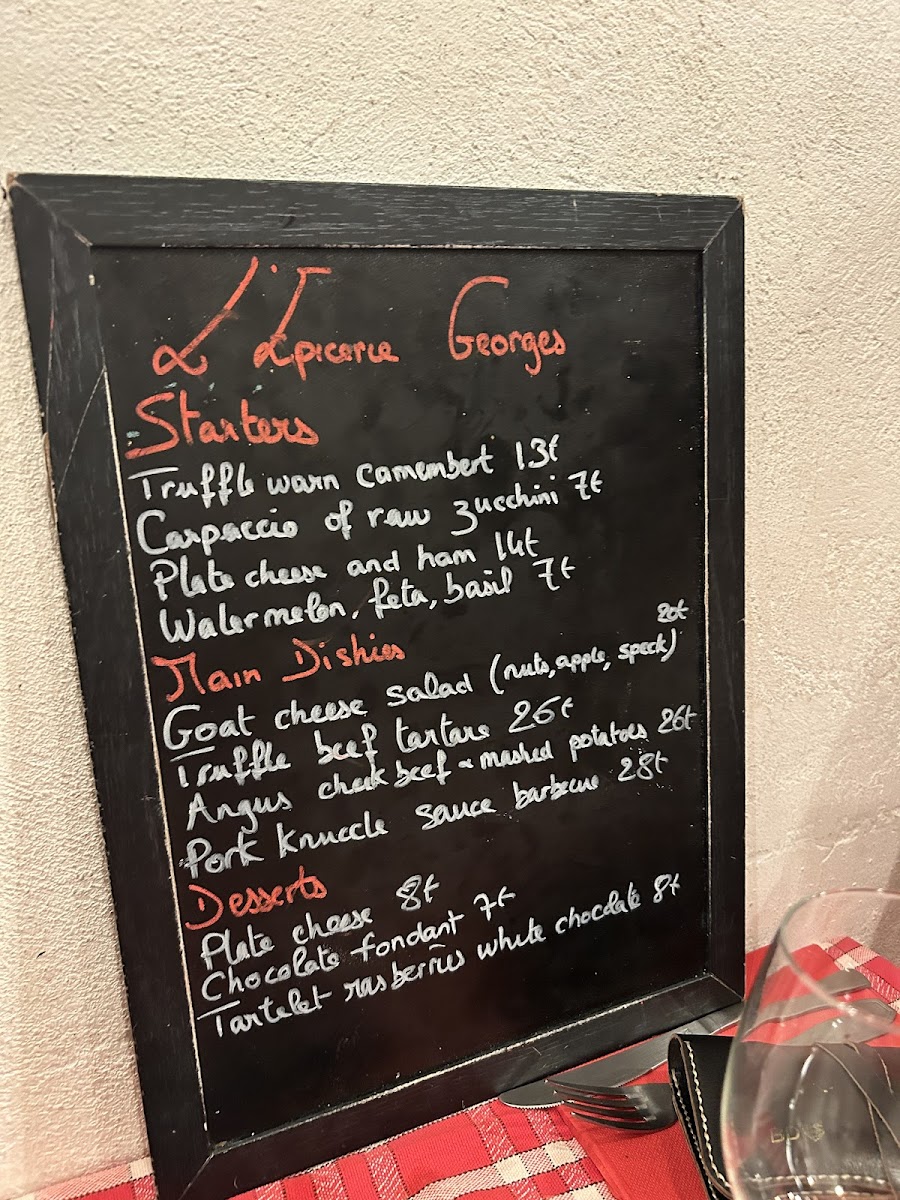 L'Epicerie Georges
Starters
Truffle warn Camembert 13€
Carpaccio of raw zucchini 7€
Plate cheese and ham 14€
Watermelon, feta, basil 7€
Main Dishies
20€
Goat cheese salad (nuts, apple, speck)
Truffle beef tartare 26€
Angus cheek beef & mashed potatoes 26€
Pork Knuccle sauce barbecue 28€
Desserts
Plate cheese 8€
Chocolate fondant 7€
Tartelet rasberries white chocolate 8€